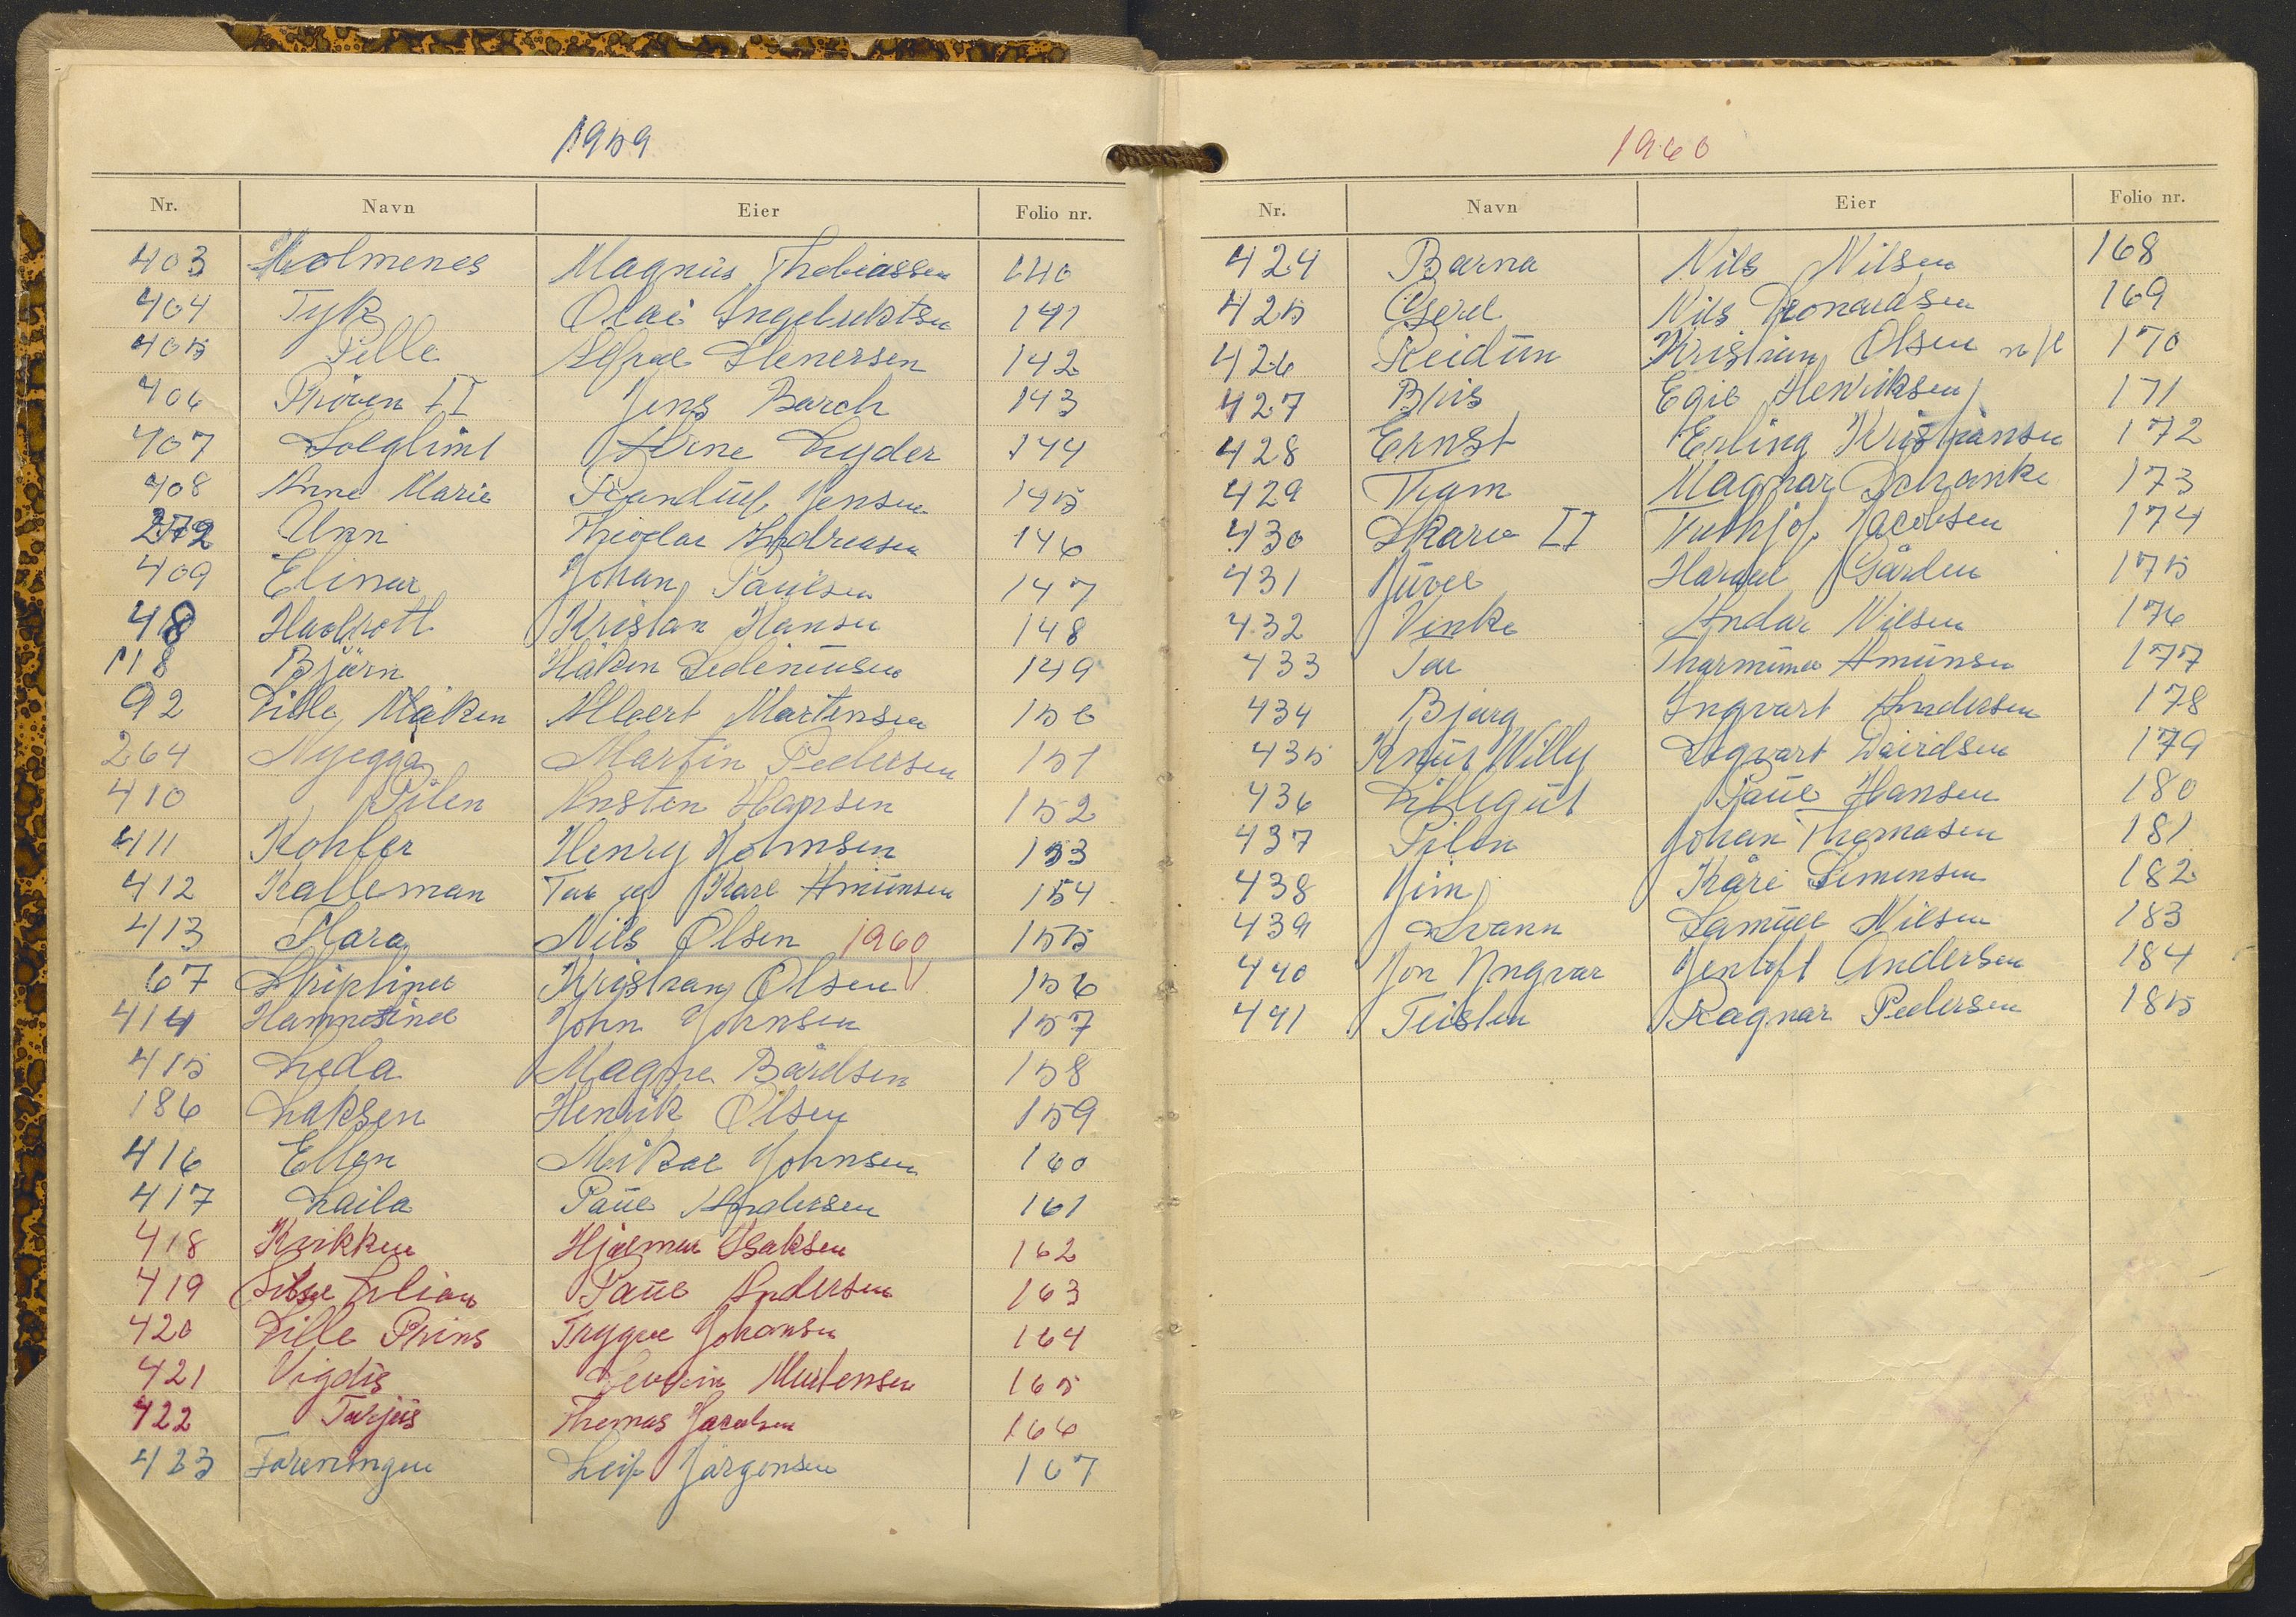 1959
Nr. Navn Eier Folio nr.
403 Holmenes Magnus Thobiassen 140
404 Tyk Olai Ingebriktsen 141
405 Pelle Alfred Stenersen 142
406 Pröven II Jens Barch 143
407 Solglimt Arne Lyder 144
408 Anne Marie Randulf Jensen 145
272 Unn Theodor Andreasen 146
409 Elinor Johan Paulsen 147
48 Havbrott Kristian Hansen 148
118 Björn Håkon Sedeniussen 149
92 Lille Måken Albert Martinsen 150
264 Nyegga Martin Pedersen 151
410 Pilen Anston Hansen 152
411 Kohler Henry Johnsen 153
412 Kalleman Tor og Kåre Amundsen 154
413 Flora Nils Olsen 1960 155
67 Skriplind Kristian Olsen 156
414 Hamnesind John Johnsen 157
415 Leda Magne Bårdsen 158
186 Laksen Henrik Olsen 159
416 Ellen Mikal Johnsen 160
417 Laila Paul Andersen 161
418 Kvikken Hjalmar Isaksen 162
419 Lilian Paul Andersen 163
420 Lille Prins Trygve Johansen 164
421 Vigdis Severin Mortensen 165
422 Tarjus Thomas Jacobsen 166
423 Foreningen Leif Jörgensen 167
1960
Nr. Navn Eier Folio nr.
424 Barna Nils Nilsen 168
425 Gerd Nils Konradsen 169
426 Reidun Kristian Olsen m/fl 170
427 Bris Egil Henriksen 171
428 Ernst Erling Kristiansen 172
429 Tram Magnar Schanke 173
430 Skarv II Fridtjof Jacobsen 174
431 Juvel Harald Gården 175
432 Venke Andor Nilsen 176
433 Tor Thormund Amundsen 177
434 Bjarg Ingvart Andersen 178
435 Knut Willy Sigvart Davidsen 179
436 Lillegut Paul Hansen 180
437 Pilen Johan Thomasen 181
438 Jim Kåre Simonsen 182
439 Svann Samuel Nilsen 183
440 Jon Yngvar Jentoft Andersen 184
441 Teisten Ragnar Pedersen 185